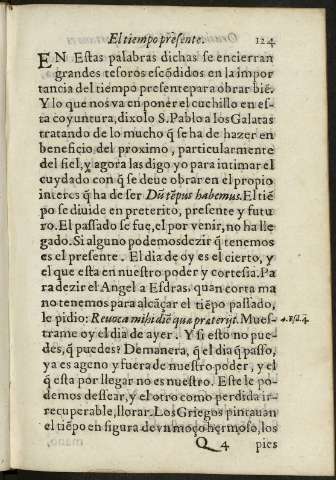 El tiempo presẽnte. 124
EN Estas palabras dichas se encierran
grandes tesoros escõdidos en la impor
tancia del tiempo presente para obrar biẽ.
Y lo que nos va en poner el cuchillo en es-
ta coyuntura, dixolo S. Pablo a los Galatas
tratando de lo mucho q̃ se ha de hazer en
beneficio del proximo, particularmente
del fiel, y agora las digo yo para intimar el
cuydado con q̃ se deue obrar en el propio
interes q̃ ha de ser Dũ tẽpus habemus. El tiẽ
po se diuide en preterito, presente y futu
ro. El passado se fue, el por venir, no ha lle
gado. Si alguno podemos dezir q̃ tenemos
es el presente. El dia de oy es el cierto, y
el que esta en nuestro poder y cortesia. Pa
ra dezir el Angel a Esdras, quan corta ma
no tenemos para alcãçar el tiẽpo passado,
le pidio: Reuoca mihi diẽ qua præterijt. Mues- 4. Esd. 4.
trame oy el dia de ayer. Y si esto no pue-
des, q̃ puedes? De manera, q̃ el dia q̃ passo,
ya es ageno y fuera de nuestro poder, y el
q̃ esta por llegar no es nuestro. Este le po-
demos dessear, y el otro como perdida ir-
recuperable, llorar. Los Griegos pintauan
el tiẽpo en figura de vn moço hermoso, los
Q 4 pies